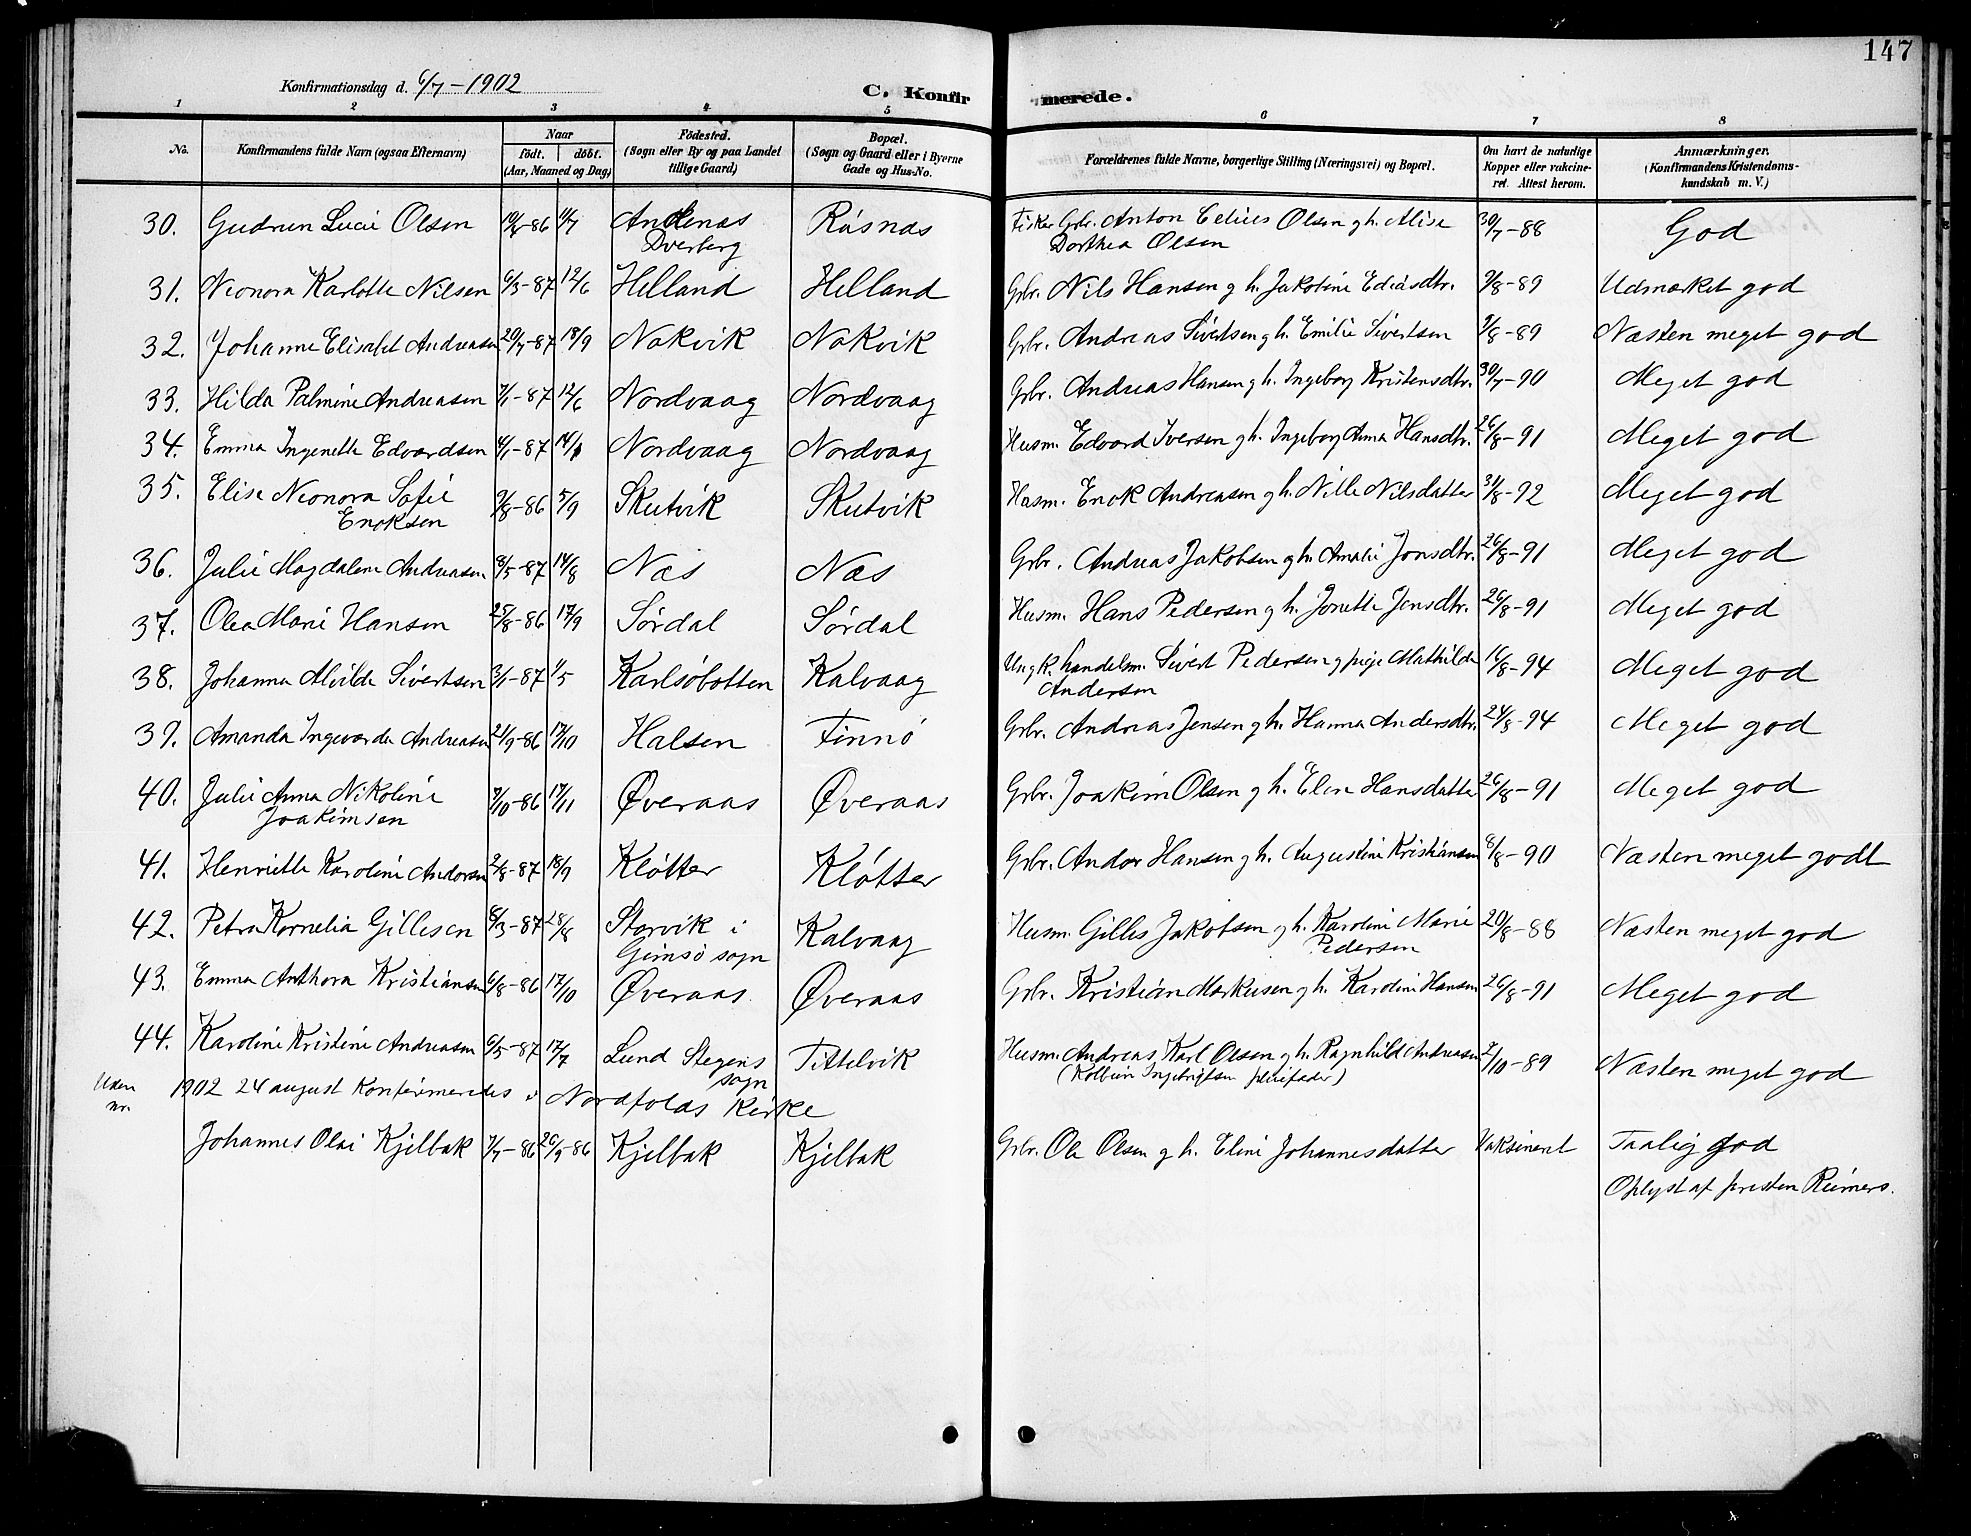 147
Konfirmationsdag d. 6/7-1902
C. Konfirmerede.
1 2 3 4 5 6 7 8
No. Konfirmandens fulde Navn (ogsaa Efternavn) Naar født. døbt. (Aar, Maaned og Dag) Födested. (Sogn eller By og paa Landet tillige Gaard) Bopæl. (Sogn og Gaard eller i Byerne Gade og Hus-No. Forældrenes fulde Navne, borgerlige Stilling (Næringsvei) og Bopæl. Om havt de naturlige Kopper eller vakcineret. Attest herom. Anmærkninger. (Konfirmandens Kristendomskundskab m. V.)
30. Gudrun Lucie Olsen -86 Andenæs Råsnas Fisker Gbr. Anton Edius Olsen g h. Alise 30/7-88 God
Dverberg Dorthea Olsen
31. Neonora Karlotte Nilsen 6/3-87 12/6 Helland Helland Gbr. Nils Hansen g h. Jakobine Ediasdtr. 9/8-89 Udmærket god
32. Johanne Elisabet Andreasen 20/7-87 18/9 Nakvik Nakvik Gbr. Andreas Sivertsen g h. Emilie Sivertsen 9/8-89 Næsten meget god
33. Hilda Palmine Andreasen 7/1-87 12/6 Nordvaag Nordvaag Gbr. Andreas Hansen g h. Ingeborg Kristensdtr. 30/7-90 Meget god
34. Emma Ingenette Edvardsen 4/1-87 Nordvaag Nordvaag Husm. Edvard Iversen g h. Ingeborg Anna Hansdtr. 26/8-91 Meget god
35. Elise Neonora Sofie 9/8-86 5/9 Skutvik Skutvik Husm. Enok Andreasen g h. Nille Nilsdatter 31/8-92 Meget god
Enoksen
36. Julie Magdalene Andreasen 8/5-87 14/8 Næs Næs Gbr. Andreas Jakobsen g h. Amalie Jonsdtr. 26/8-91 Meget god
37. Olea Marie Hansen 25/8-86 17/9 Sørdal Sørdal Husm. Hans Pedersen g h. Jonette Jensdtr. 26/8-91 Meget god
38. Johanna Alvilde Sivertsen 3/1-87 1/5 Karlsøbotten Kalvaag Ungk. handelsm. Sivert Pedersen g pige Mathilde 16/8-94 Meget god
Andersen
39. Amanda Ingevarda Andreasen 21/9-86 17/10 Halsen Finnø Gbr. Andreas Jensen g h. Hanna Andersdtr. 24/8-94 Meget god
40. Julie Anna Nikoline 7/10-86 17/11 Øveraas Øveraas Gbr. Joakim Olsen g h. Elen Hansdatter 26/8-91 Meget god
Joakimsen
41. Henriette Karoline Andorsen 2/8-87 18/9 Kløtter Kløtter Gbr. Andor Hansen g h. Augustine Kristiansen 8/8-90 Næsten meget godt
42. Petra Kornelia Gillesen 8/3-87 28/8 Storvik i Kalvaag Husm. Gilles Jakobsen g h. Karoline Marie 20/8-88 Næsten meget god
Gimsø sogn Pedersen
43. Emma Anthora Kristiansen 6/8-86 17/10 Øveraas Øveraas Gbr. Kristian Markusen g h. Karoline Hansen 26/8-91 Meget god
44. Karoline Kristine Andreasen 6/5-87 17/7 Lund Stegens Tittelvik Husm. Andreas Karl Olsen g h. Ragnhild Andreasen 7/10-89 Næsten meget god
sogn (Kolbein Ingebrigtsen pleiefader)
Uden nr. 1902 24 august Konfirmeredes i Nordfolds Kirke
Johannes Olai Kjelbak 7/7-86 26/9-86 Kjelbak Kjelbak Gbr. Ole Olsen g h. Eline Johannesdatter Vaksineret Taalig god
Oplyst af presten Reimers.